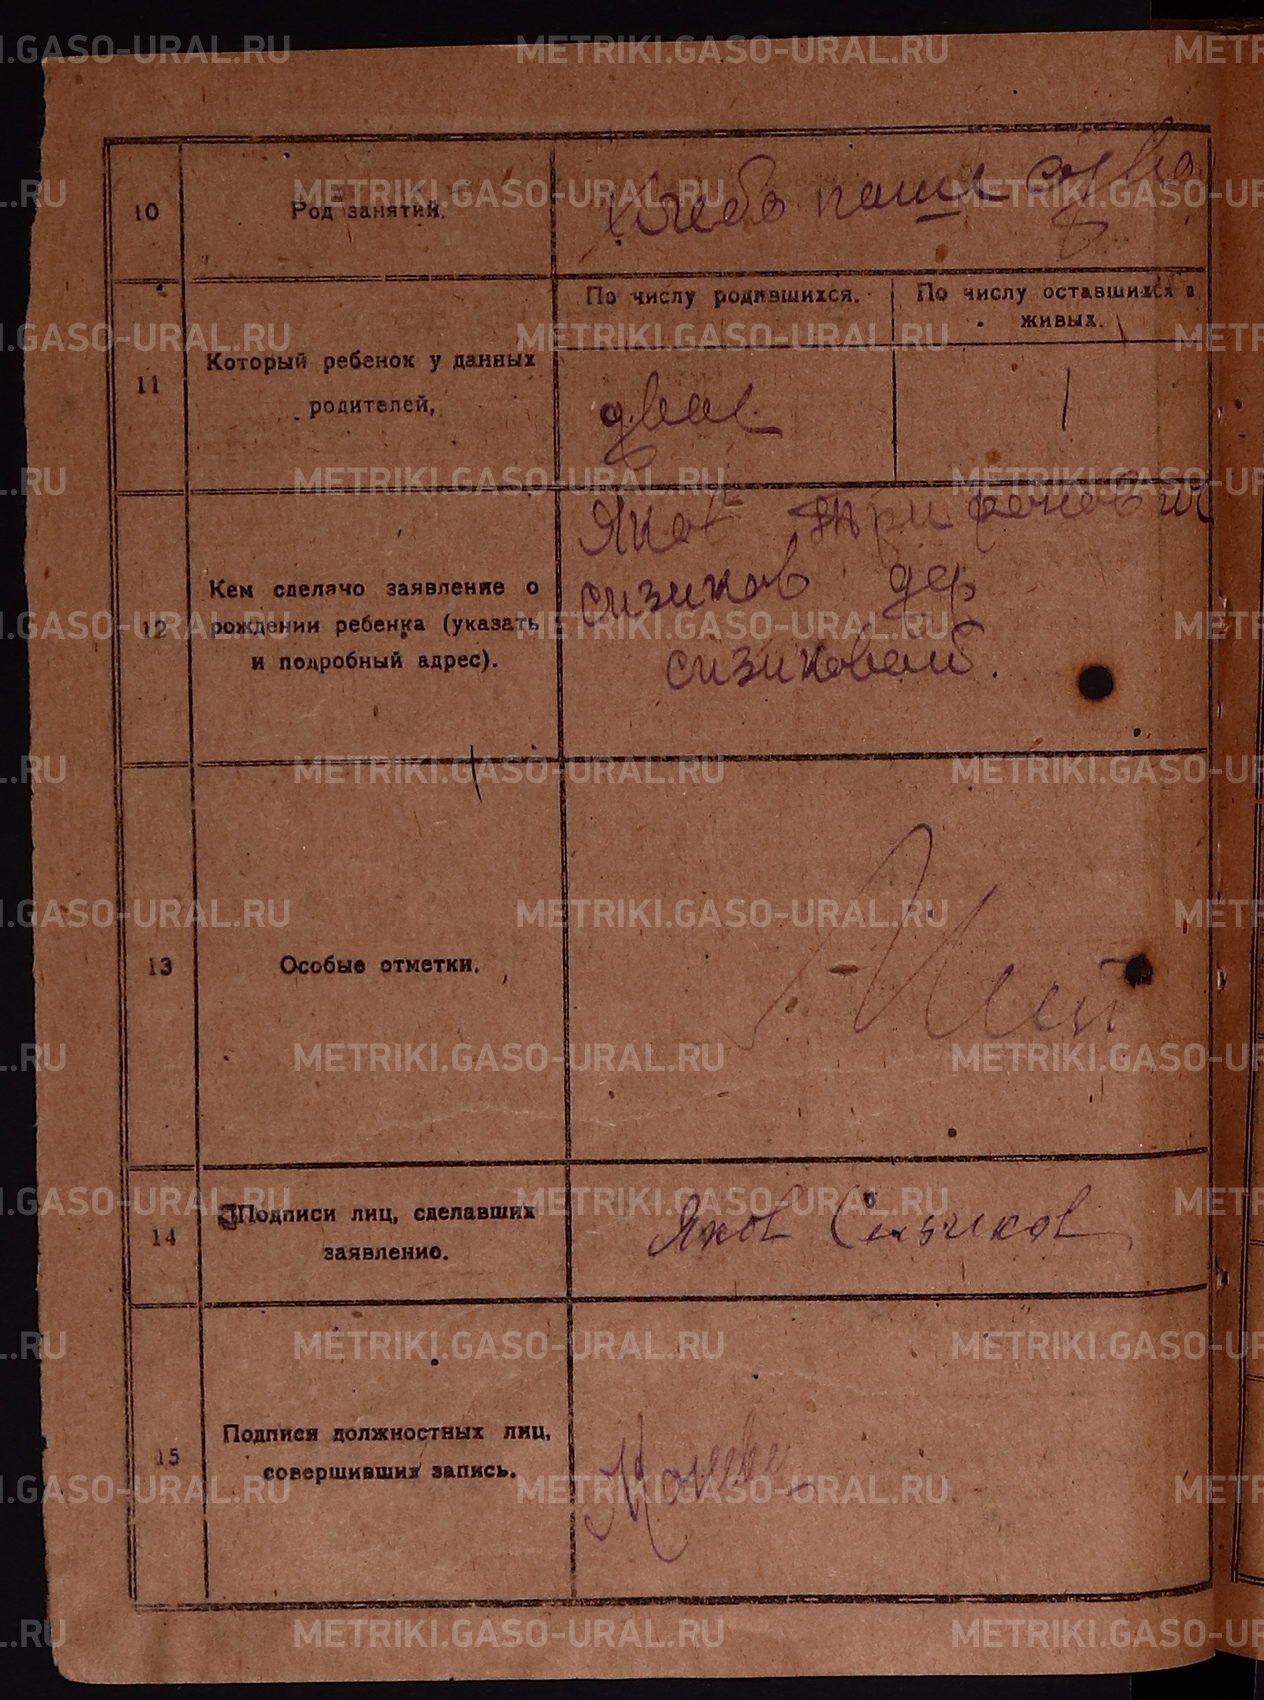 10
Род занятий.
Хлебо паше
11
Который ребенок у данных
родителей,
По числу родившихся.
По числу оставшихся в
живых.
двае
1
12
Кем сделано заявление о
рождении ребенка (указать
и подробный адрес).
Яков Трифонович
сизиков дер
сизиковой.
13
Особые отметки.
Нет
14
Подписи лиц, сделавших
заявление.
Яков Сизиков
15
Подписи должностных лиц,
совершивших запись.
METRIKI.GASO-URAL.RU